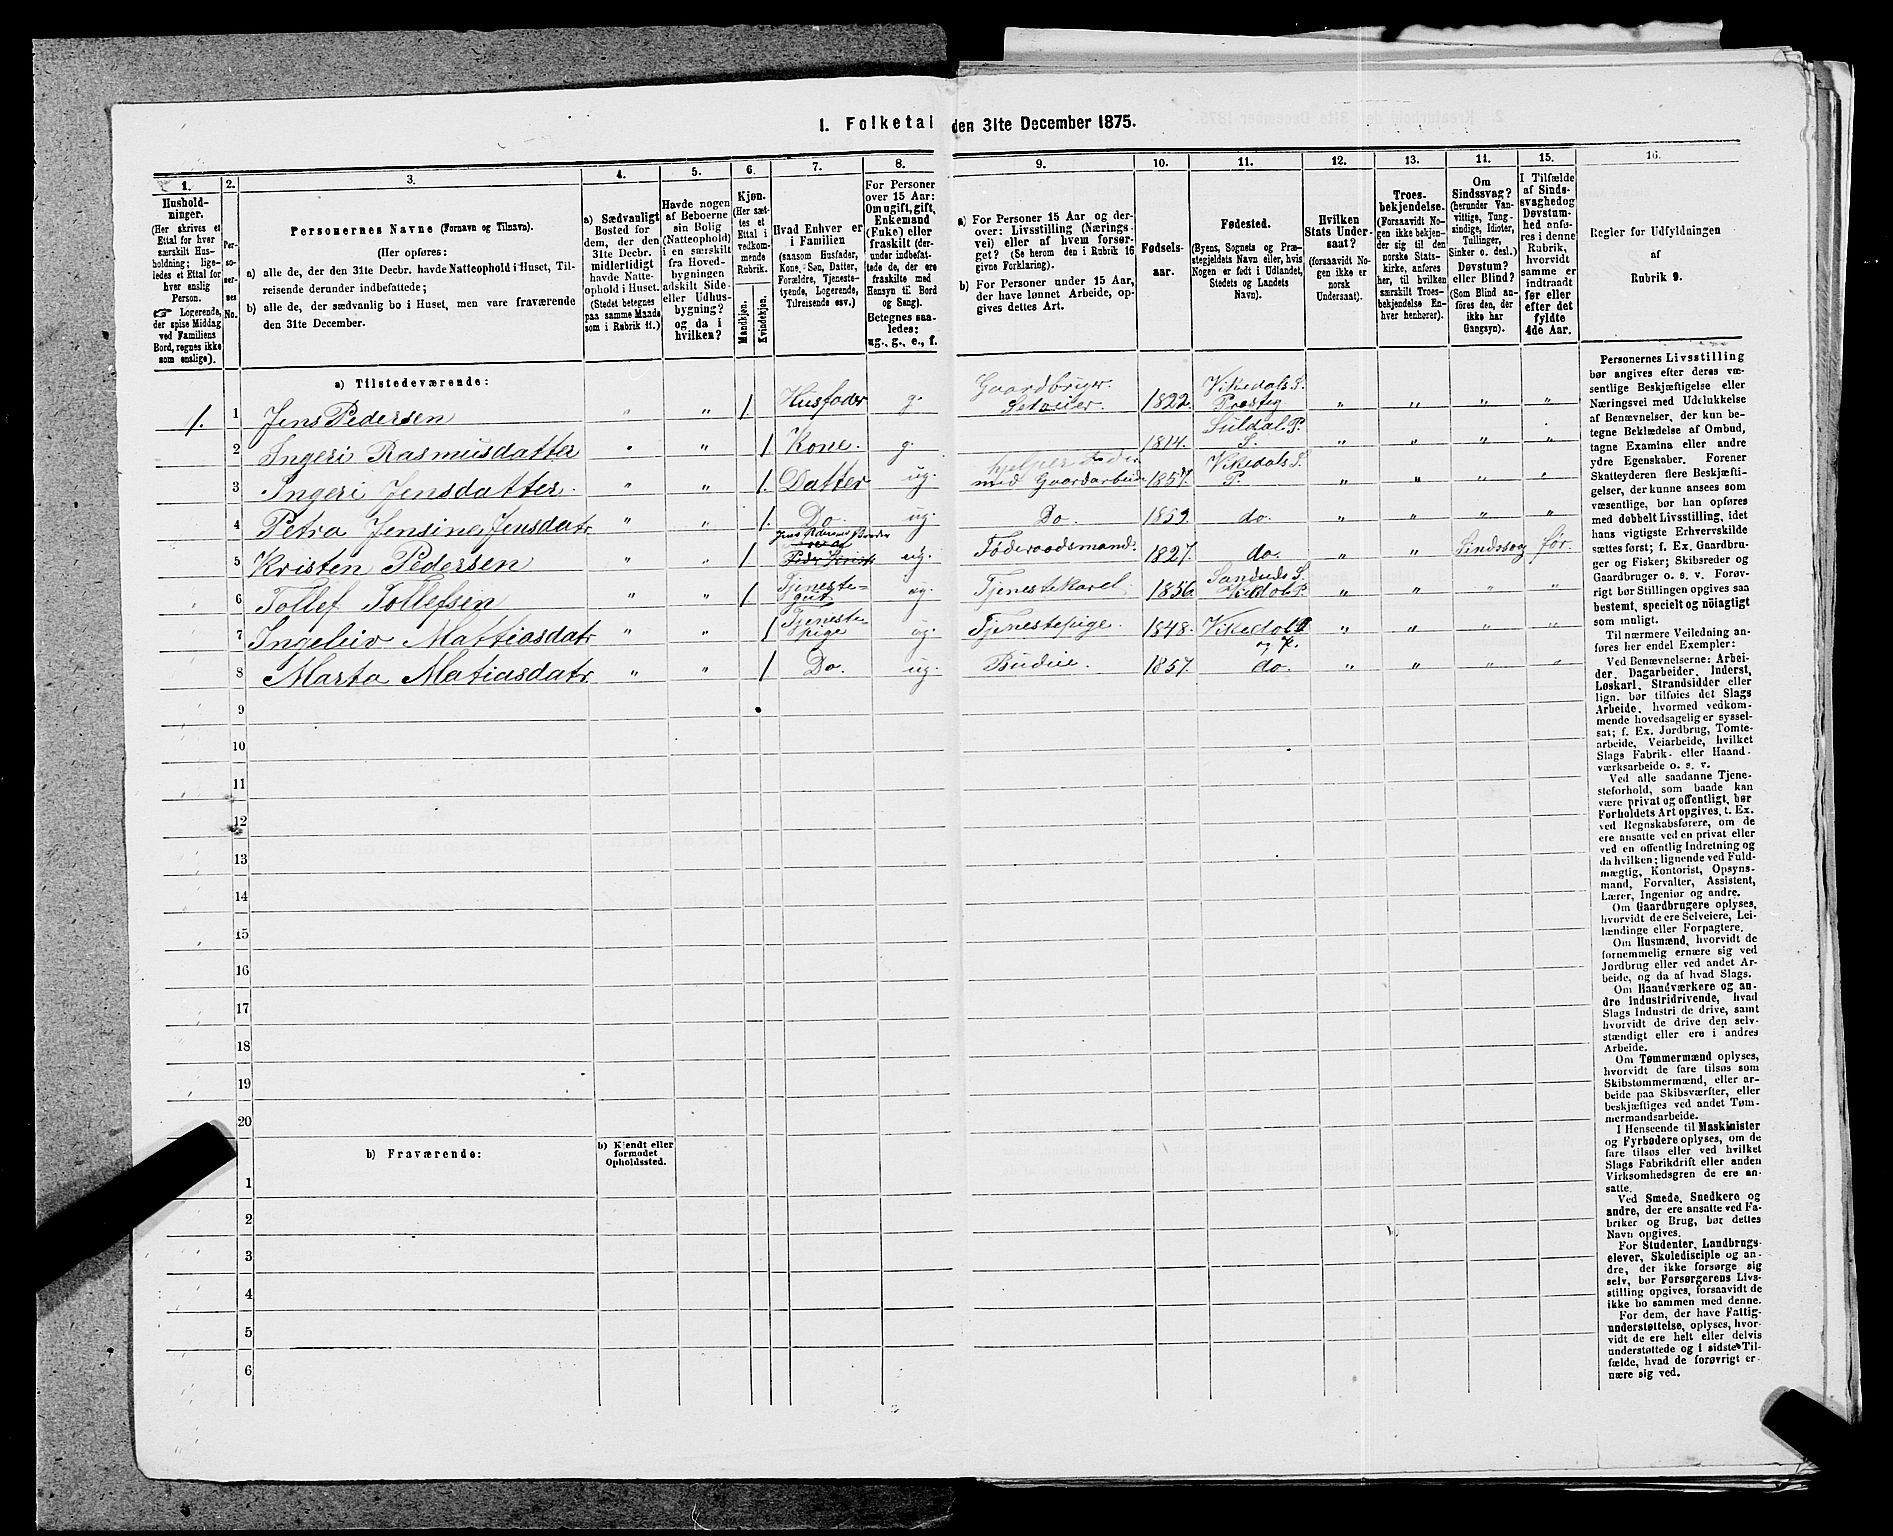 1. Folketal den 31te December 1875.
1.
Hushold-
ninger.
(Her skrives et
Ettal for hver
særskilt Hus-
holdning; lige-
ledes et Ettal for
hver enslig
Person.
☞ Logerende,
der spise Middag
ved Familiens
Bord, regnes ikke
som enslige).
2.
Per-
so-
ner-
nes
No.
3.
Personernes Navne (Fornavn og Tilnavn).
(Her opføres:
a) alle de, der den 31te Decbr. havde Natteophold i Huset, Til-
reisende derunder indbefattede;
b) alle de, der sædvanlig bo i Huset, men vare fraværende
den 31te December.
4.
a) Sædvanligt
Bosted for
dem, der den
31te Decbr.
midlertidigt
havde Natte-
ophold i Huset.
(Stedet betegnes
paa samme Maade
som i Rubrik 11.)
5.
Havde nogen
af Beboerne
sin Bolig
(Natteophold)
i en særskilt
fra Hoved-
bygningen
adskilt Side-
eller Udhus-
bygning?
og da i
hvilken?
6.
Kjøn.
(Her sæt-
tes et
Ettal i
vedkom-
mende
Rubrik.
Mandkjøn.
Kvindekjøn.
7.
Hvad Enhver er
i Familien
(saasom Husfader,
Kone, Søn, Datter,
Forældre, Tjeneste-
tyende, Logerende,
Tilreisende osv.)
8.
For Personer
over 15 Aar:
Om ugift, gift,
Enkemand
(Enke) eller
fraskilt (der-
under indbefat-
tede de, der ere
fraskilte med
Hensyn til Bord
og Seng).
Betegnes saa-
ledes:
ug., g., e., f.
9.
a) For Personer 15 Aar og der-
over: Livsstilling (Nærings-
vei) eller af hvem forsør-
get? (Se herom den i Rubrik 16
givne Forklaring).
b) For Personer under 15 Aar,
der have lønnet Arbeide, op-
gives dettes Art.
10.
Fødsels-
aar.
11.
Fødested.
(Byens, Sognets og Præ-
stegjeldets Navn eller, hvis
Nogen er født i Udlandet,
Stedets og Landets
Navn).
12.
Hvilken
Stats Under-
saat?
(forsaavidt No-
gen ikke er
norsk
Undersaat).
13.
Troes-
bekjendelse.
(Forsaavidt No-
gen ikke bekjen-
der sig til den
norske Stats-
kirke, anføres
her, til hvilken
særskilt Troes-
bekjendelse En-
hver henhører).
11.
Om
Sindssvag?
(herunder Van-
vittige, Tung-
sindige, Idioter,
Tullinger,
Sinker o. desl.)
Døvstum?
eller Blind?
(Som Blind an-
føres den, der
ikke har
Gangsyn).
15.
I Tilfælde
af Sinds-
svaghed og
Døvstum-
hed anfø-
res i denne
Rubrik,
hvorvidt
samme er
indtraadt
før eller
efter det
fyldte
4de Aar.
16.
Regler for Udfyldningen
af
Rubrik 9.
a) Tilstedeværende:
1. 1 Jens Pedersen " " 1 Husfader g. Gaardbruger Selveier. 1822 Vikedals S. Præsteg " " " "
2 Ingeri Rasmusdatter " " 1 Kone. g. 1814. Suldal P. S. " " " "
3 Ingeri Jensdatter. " " 1. Datter ug. med Gaardarbeide 1857. Vikedals S. P. " " " "
4 Petra Jensine Jensdatr " " 1. Do. ug. Do. 1859. do. " " " "
5 Kristen Pedersen " " 1 ug. Føderaadsmand. 1827. do. " " Sindssvag før.
6 Tollef Tollefsen " " 1 Tjeneste-gut ug. Tjenestekarl. 1856 " " " "
7 Ingeleiv Mattiasdatr " " 1 Tjeneste-pige ug. Tjenestepige. 1848. Vikedal og P. " " " "
8 Marta Matiasdatr " " 1 Do. ug. Budeie. 1857. do. " " " "
9
10
11
12
13
14
15
16
17
18
19
20
b) Fraværende:
b) Kjendt eller
formodet
Opholdssted.
1
2
3
4
5
6
Personernes Livsstilling
bør angives efter deres væ-
sentlige Beskjæftigelse eller
Næringsvei med Udelukkelse
af Benævnelser, der kun be-
tegne Beklædelse af Ombud,
tagne Examina eller andre
ydre Egenskaber. Forener
Skatteyderen flere Beskjæfti-
gelser, der kunne ansees som
væsentlige, bør han opføres
med dobbelt Livsstilling, idet
hans vigtigste Erhvervskilde
sættes først; f. Ex. Gaardbru-
ger og Fisker; Skibsreder og
Gaardbruger o. s. v. Forøv-
rigt bør Stillingen opgives saa
bestemt, specielt og nöiagtigt
som muligt.
Til nærmere Veiledning an-
føres her endel Exempler:
Ved Benævnelserne: Arbei-
der, Dagarbeider, Inderst,
Løskarl, Strandsidder eller
lign. bør tilføies det Slags
Arbeide, hvormed vedkom-
mende hovedsagelig er syssel-
sat; f. Ex. Jordbrug, Tomte-
arbeide, Veiarbeide, hvilket
Slags Fabrik- eller Haand-
værksarbeide o. s. v.
Ved alle saadanne Tjene-
steforhold, som baade kan
være privat og offentligt, bør
Forholdets Art opgives, t. Ex.
ved Regnskabsførere, om de
ere ansatte ved en privat eller
ved en offentlig Indretning og
da hvilken; lignende ved Fuld-
mægtig, Kontorist, Opsyns-
mand, Forvalter, Assistent,
Lærer, Ingeniør og andre.
Om Gaardbrugere oplyses,
hvorvidt de ere Selveiere, Lei-
lændinge eller Forpagtere.
Om Husmænd, hvorvidt de
fornemmelig ernære sig ved
Jordbrug eller ved andet Ar-
beide, og da af hvad Slags.
Om Haandværkere og an-
dre Industridrivende, hvad
Slags Industri de drive, samt
hvorvidt de drive den selv-
stændigt eller ere i andres
Arbeide.
Om Tømmermænd oplyses,
hvorvidt de fare tilsøs som
Skibstømmermænd, eller ar-
beide paa Skibsværfter, eller
beskjæftiges ved andet Tøm-
mermandsarbeide.
I Henseende til Maskinister
og Fyrbødere oplyses, om de
fare tilsøs eller ved hvilket
Slags Fabrikdrift eller anden
Virksomhedsgren de ere an-
satte.
Ved Smede, Snedkere og
andre, der ere ansatte ved Fa-
briker og Brug, bør dettes
Navn opgives.
For Studenter, Landbrugs-
elever, Skoledisciple og an-
dre, der ikke forsørge sig
selv, bør Forsørgerens Livs-
stilling opgives, forsaavidt de
ikke bo sammen med denne.
For dem, der have Fattig-
understøttelse, oplyses, hvor-
vidt de ere helt eller delvis
understøttede og i sidste Til-
fælde, hvad de forøvrigt er-
nære sig ved.